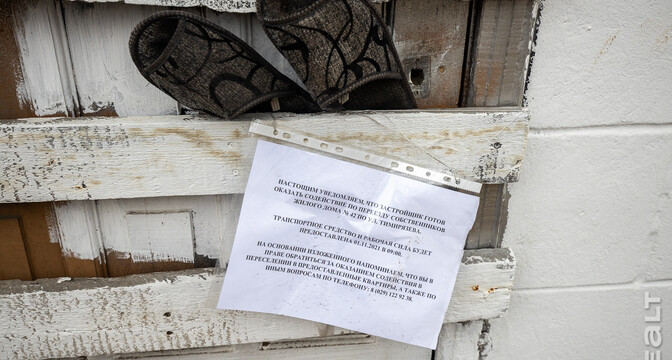 НАСТОЯЩИМ УВЕДОМЛЯЕМ, ЧТО ЗАСТРОЙЩИК ГОТОВ
ОКАЗАТЬ СОДЕЙСТВИЕ ПО ПЕРЕЕЗДУ СОБСТВЕННИКОВ
ЖИЛОГО ДОМА № 42 ПО УЛ.ТИМИРЯЗЕВА.
ТРАНСПОРТНОЕ СРЕДСТВО И РАБОЧАЯ СИЛА БУДЕТ
ПРЕДОСТАВЛЕНА 01.11.2021 В 09:00.
НА ОСНОВАНИИ ИЗЛОЖЕННОГО НАПОМИНАЕМ, ЧТО ВЫ В
ПРАВЕ ОБРАТИТЬСЯ ЗА ОКАЗАНИЕМ СОДЕЙСТВИЯ В
ПЕРЕСЕЛЕНИИ В ПРЕДОСТАВЛЕННЫЕ КВАРТИРЫ, А ТАКЖЕ ПО
ИНЫМ ВОПРОСАМ ПО ТЕЛЕФОНУ: 8 (029) 122 92 38.